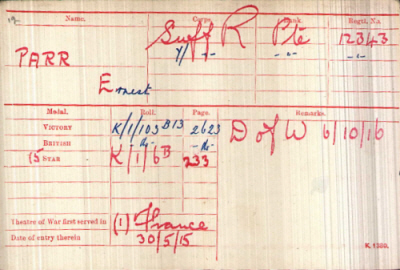 Name. Corps. Rank. Regtl. No.
PARR Suff R Pte 12343
7/ -"- -"- -"-
Ernest
Medal. Roll. Page. Remarks.
VICTORY K/1/103 B13 2623 D of W 6/10/16
BRITISH -do- -do-
15 STAR K/1/6B 233
Theatre of War first served in (1) France
Date of entry therein 30/5/15
K. 1380.